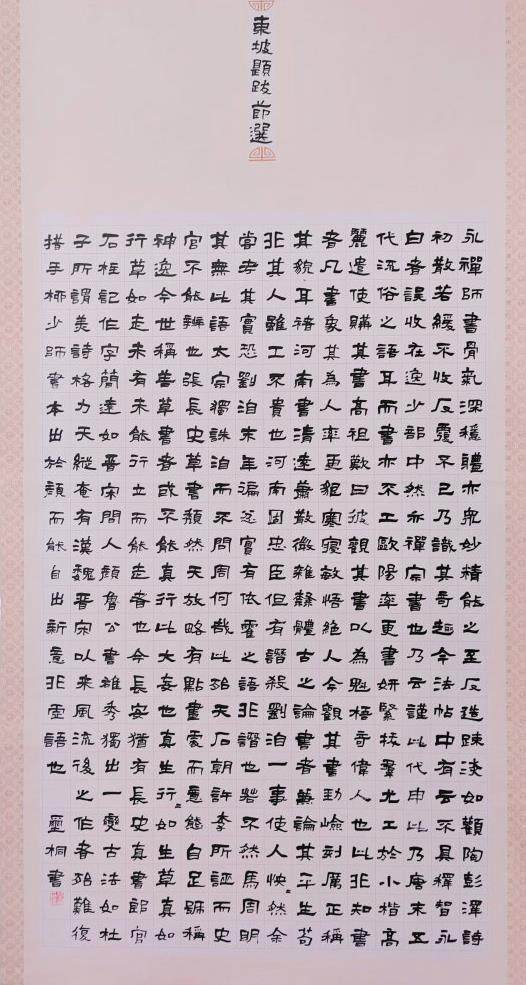 東坡題跋節選
永禪師書骨氣深穩體亦衆妙精能之至反造疎淡如觀陶彭澤詩
初散若緩不收反覆不已乃識其奇趣今法帖中有云不具釋智永
白者誤收在逸少部中然亦禪宗書也乃云謹此代申此乃唐末五
代流俗之語耳而書亦不工歐陽率更書妍緊拔羣尤工於小楷高
麗遣使購其書高祖歎曰彼觀其書以為魁梧奇偉人也此非知書
者凡書象其為人率更貌寒寢敏悟絕人今觀其書勁嶮刻厲正稱
其貌耳褚河南書清遠蕭散微雜隸體古之論書者兼論其平生苟
非其人雖工不貴也河南固忠臣但有譖殺劉洎一事使人怏々然余
嘗考其實恐劉洎末年褊忿實有依霍之語非譖也若不然馬周明
其無此語太宗獨誅洎而不問周何哉此殆天后朝許李所誣而史
官不能辨也張長史草書頹然天放略有點畫處而意態自足號稱
神逸今世稱善草書者或不能真行此大妄也真生行々如生草真如
行草如走未有未能行立而能走者也今長安猶有長史真書郎官
石柱記作字簡遠如晉宋間人顏魯公書雄秀獨出一變古法如杜
子所謂美詩格力天縱奄有漢魏晉宋以來風流後之作者殆難復
措手柳少師書本出於顏而能自出新意非虛語也 靈桐書